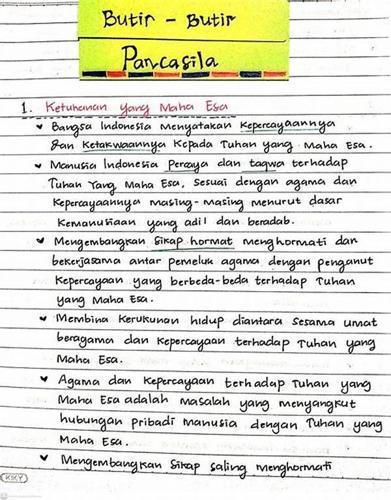 Butir - Butir
Pancasila
1. Ketuhanan yang Maha Esa
Bangsa Indonesia menyatakan Kepercayaannya
dan Ketakwaannya Kepada Tuhan yang Maha Esa.
Manusia Indonesia Percaya dan taqwa terhadap
Tuhan Yang Maha Esa, Sesuai dengan agama dan
Kepercayaannya masing-masing menurut dasar
Kemanusiaan yang adil dan beradab.
Mengembangkan Sikap hormat menghormati dan
bekerjasama antar pemeluk agama dengan penganut
Kepercayaan yang berbeda-beda terhadap Tuhan
yang Maha Esa.
Membina Kerukunan hidup diantara Sesama umat
beragama dan Kepercayaan terhadap Tuhan yang
Maha Esa.
Agama dan Kepercayaan terhadap Tuhan yang
Maha Esa adalah masalah yang menyangkut
hubungan pribadi manusia dengan Tuhan yang
Maha Esa.
Mengembangkan Sikap saling menghormati
KKY